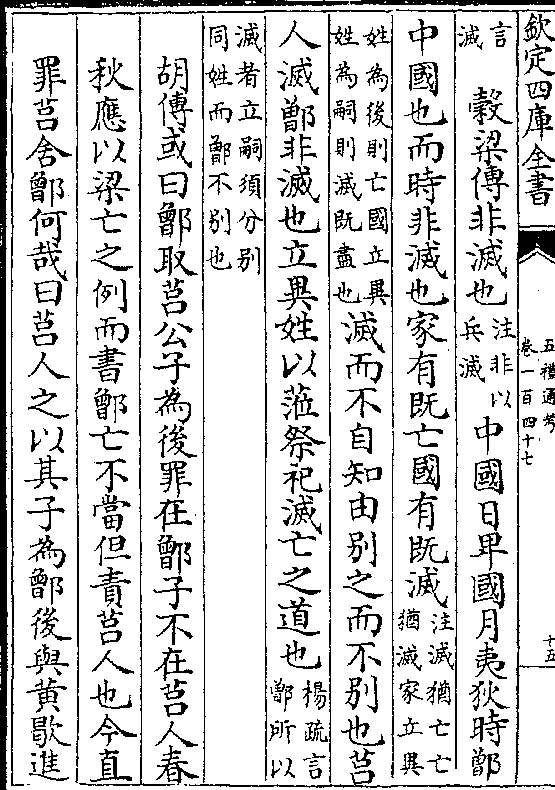 欽定四庫全書
五禮通考
卷一百四十七
十五
言滅　穀梁傳非滅也注非以兵滅中國日卑國月夷狄時鄫
中國也而時非滅也家有既亡國有既滅注滅猶亡亡猶滅家立異
姓為後則亡國立異姓為嗣則滅既盡也滅而不自知由别之而不别也莒
人滅鄫非滅也立異姓以蒞祭祀滅亡之道也楊疏言鄫所以
滅者立嗣須分别同姓而鄫不别也
胡傳或曰鄫取莒公子為後罪在鄫子不在莒人春
秋應以梁亡之例而書鄫亡不當但責莒人也今直
罪莒舍鄫何哉曰莒人之以其子為鄫後與黄歇進